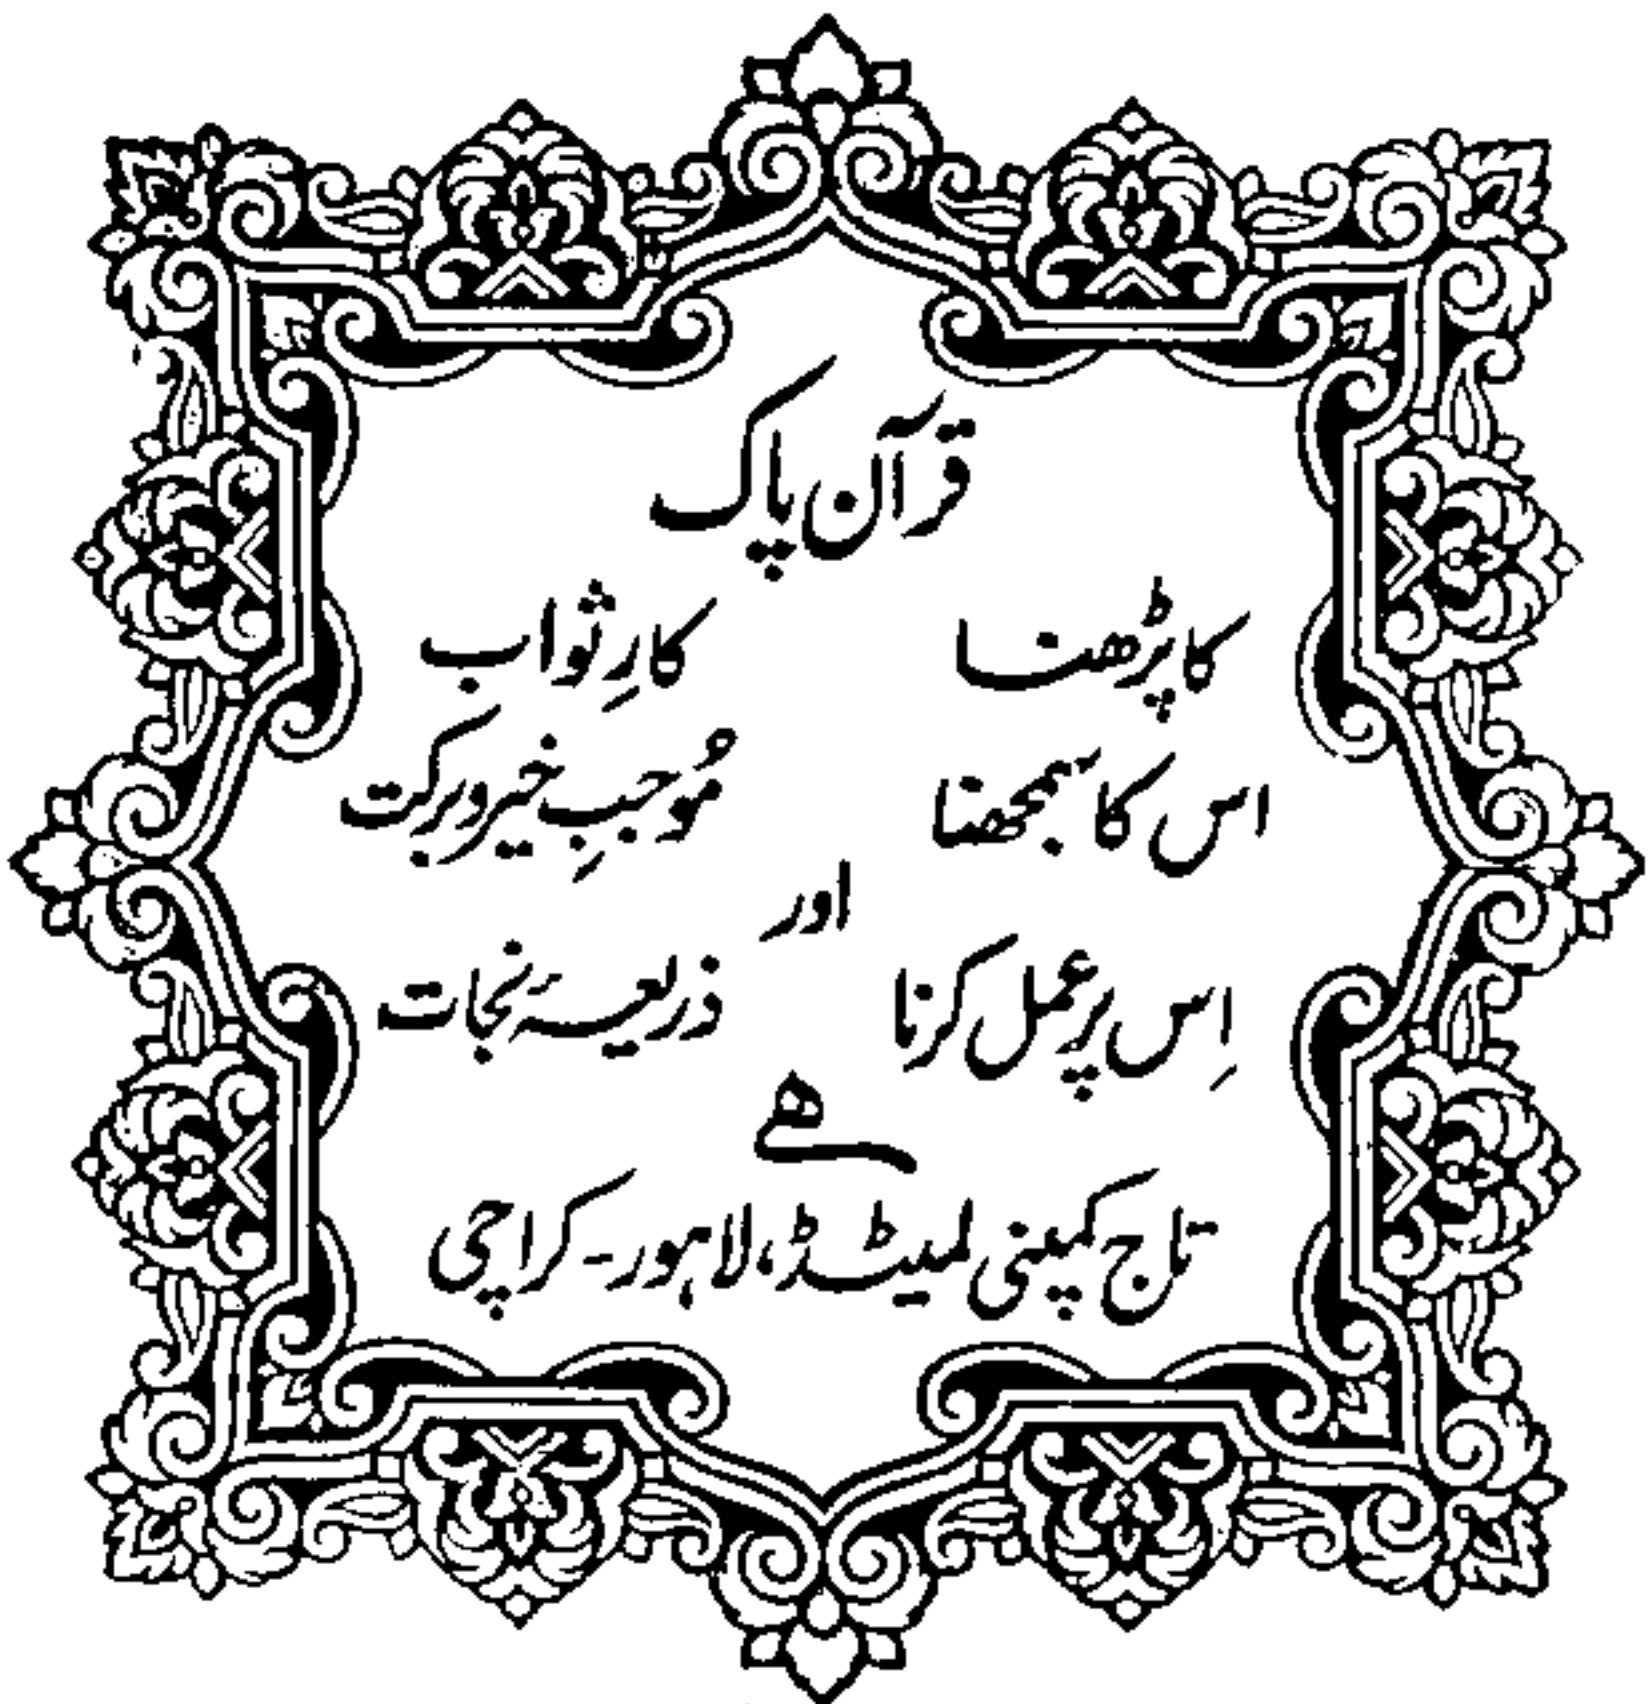 قرآن پاک
کا پڑھنا کارِ ثواب
اس کا سمجھنا مُوجبِ خیر و برکت
اور
اِس پر عمل کرنا ذریعۂ نجات
ھے
تاج کمپنی لمیٹڈ، لاہور - کراچی